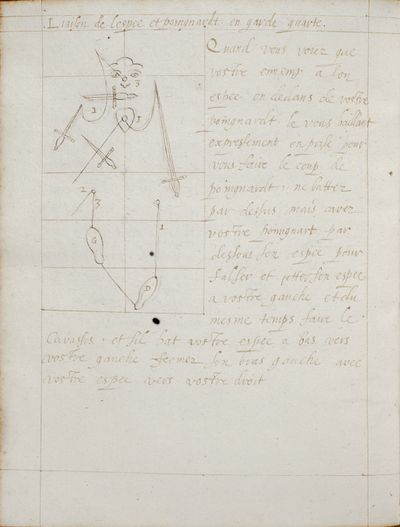 Liaison de lespee et poingnardt en garde quarte.
Quand vous voiez que
vostre enemy a son
espee en dedans de vostre
poingnardt le vous baillant
expressement en prise pour
vous faire le coup de
poingnardt, ne battez
par dessus mais cavez
vostre poingnart par
dessous son espee pour
son espee
a vostre gauche et du
mesme temps faire le
et sil bat vostre espee a bas vers
vostre gauche fermez son bras gauche avec
vostre espee vers vostre droit
2
3
1
G
D